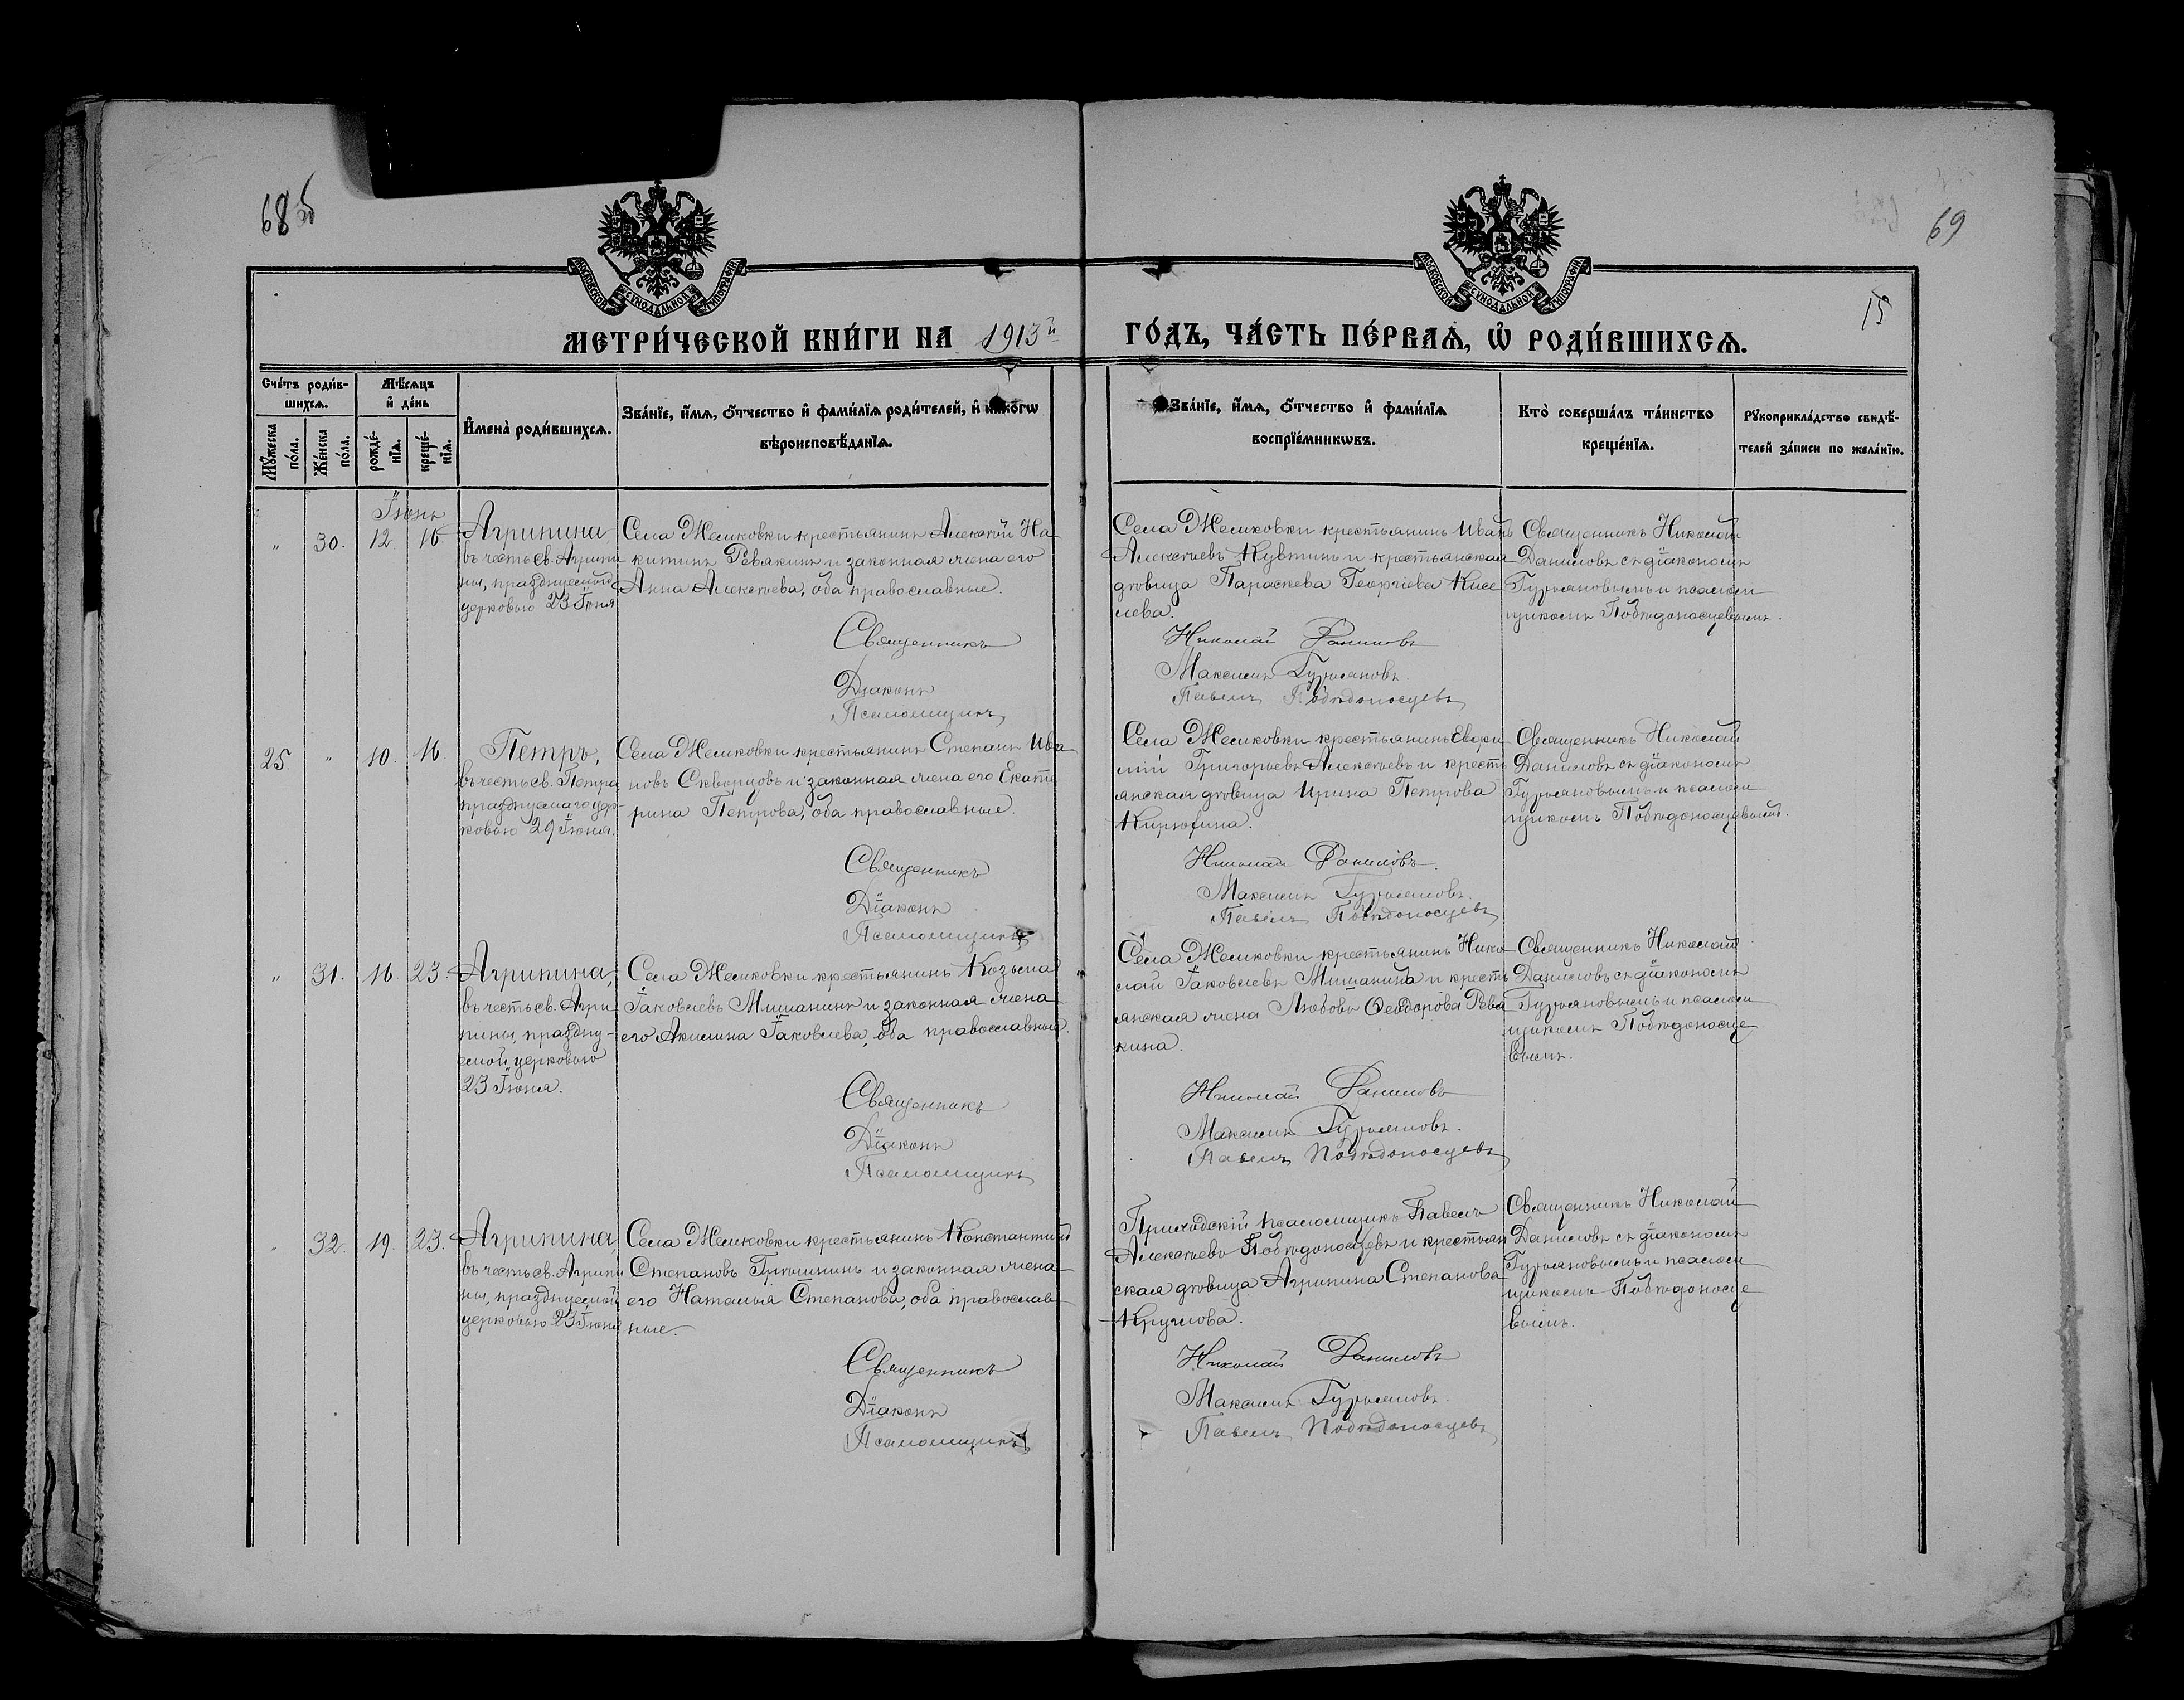 68 об
69
15
МОСКОВСКОЙ СѴНОДАЛЬНОЙ ТИПОГРАФІИ
МОСКОВСКОЙ СѴНОДАЛЬНОЙ ТИПОГРАФІИ
МЕТРИ́ЧЕСКОЙ КНИ́ГИ НА 1913й ГО́ДЪ, ЧА́СТЬ ПЕ́РВАѦ, Ѡ҆ РОДИ́ВШИХСѦ.
Сче́тъ роди́в-
шихсѧ.
Мѣ́сѧцъ
и҆ де́нь
Мꙋ́жеска
по́ла.
Же́нска
по́ла.
рожде́-
нїѧ.
креще́-
нїѧ.
И҆мена̀ роди́вшихсѧ.
Зва́нїе, и҆́мѧ, ѻ҆́тчество и҆ фами́лїѧ роди́телей, и҆ како́гѡ
вѣроисповѣ́данїѧ.
Зва́нїе, и҆́мѧ, ѻ҆́тчество и҆ фами́лїѧ
воспрїе́мникѡвъ.
Кто̀ соверша́лъ та́инство
креще́нїѧ.
Рꙋкоприкла́дство свидѣ́-
телей за́писи по жела́нїю.
Іюнь
" 30. 12. 16
Агрипина,
въ честь св. Агрипи
ны, празднуемой
церковью 23 Іюня
Села Желковки крестьянинъ Алексѣй Ни-
китинъ Ревякинъ и законная жена его
Анна Алексѣева, оба православные.
Священникъ
Діаконъ
Псаломщикъ
Села Желковки крестьянинъ Иванъ
Алексѣевъ и крестьянская
дѣвица Параскева Георгіева Кисе
лева.
Николай Даниловъ
Максимъ Гурьяновъ
Павелъ Побѣдоносцевъ
Священникъ Николай
Даниловъ съ діакономъ
Гурьяновымъ и псалом
щикомъ Побѣдоносцевымъ.
25. " 10. 16.
Петръ,
въ честь св. Петра
празднуемаго цер-
ковью 29 Іюня.
Села Желковки крестьянинъ Степанъ Ива
новъ Скворцовъ и законная жена его Екате
рина Петрова, оба православные.
Священникъ
Діаконъ
Псаломщикъ
Села Желковки крестьянинъ
Григорьевъ Алексѣевъ и кресть
янская дѣвица Ирина Петрова
Кирюхина.
Николай Даниловъ.
Максимъ Гурьяновъ.
Павелъ Побѣдоносцевъ
Священникъ Николай
Даниловъ съ діакономъ
Гурьяновымъ и псалом
щикомъ Побѣдоносцевымъ.
" 31. 16. 23.
Агрипина,
въ честь св. Агри
пины, праздну-
емой церковью
23 Іюня.
Села Желковки крестьянинъ Козьма
Іаковлевъ Мишанинъ и законная жена
его Акилина Іаковлева, оба православные.
Священникъ
Діаконъ
Псаломщикъ
Села Желковки крестьянинъ Нико
лай Іаковлевъ Мишанинъ и кресть
янская жена Любовь Ѳеодорова Ревя
кина.
Николай Даниловъ
Максимъ Гурьяновъ.
Павелъ Побѣдоносцевъ
Священникъ Николай
Даниловъ съ діакономъ
Гурьяновымъ и псалом
щикомъ Побѣдоносце
вымъ.
" 32. 19. 23.
Агрипина,
въ честь св. Агрипи
ны, празднуемой
церковью 23 Іюня
Села Желковки крестьянинъ Константинъ
Степановъ Гришинъ и законная жена
его Наталья Степанова, оба православ
ные.
Священникъ
Діаконъ
Псаломщикъ
Приходскій псаломщикъ Павелъ
Алексѣевъ Побѣдоносцевъ и крестьян
ская дѣвица Агрипина Степанова
Круглова.
Николай Даниловъ
Максимъ Гурьяновъ.
Павелъ Побѣдоносцевъ
Священникъ Николай
Даниловъ съ діакономъ
Гурьяновымъ и псалом
щикомъ Побѣдоносце
вымъ.